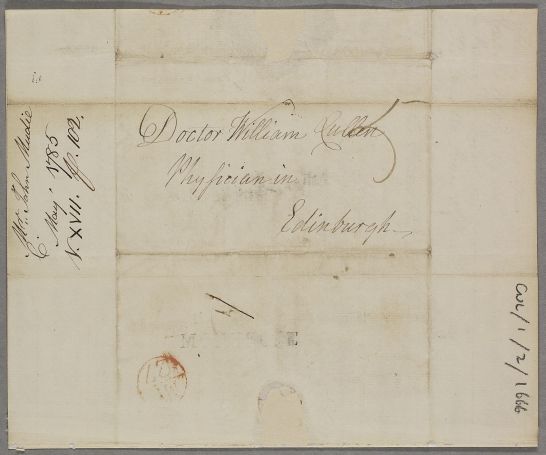 Doctor William Cullen
Physician in
Edinburgh
5
Mr. John Mudie
C. May 1785
N. XVII. ff. 102.
CUL/1/2/1666